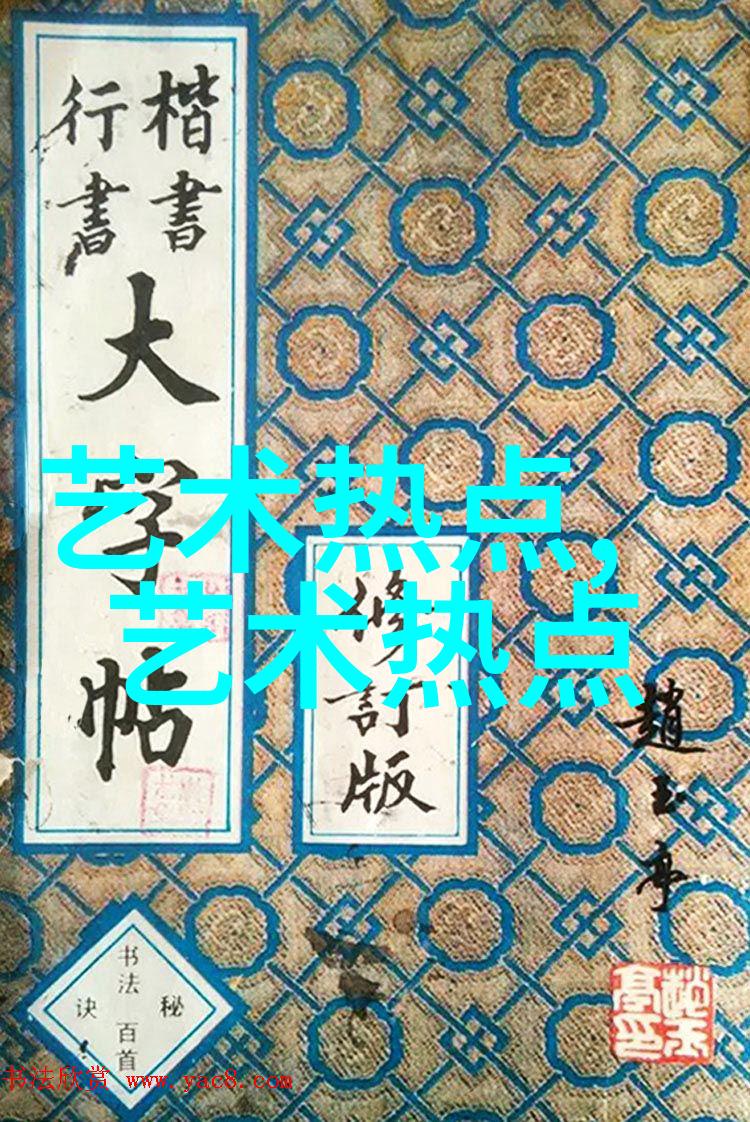 楷書
行書
大字帖
修訂版
艺术热点,
艺术热点
趙玉亭
书法百首
秘诀
书法欣赏 www.yac8.com